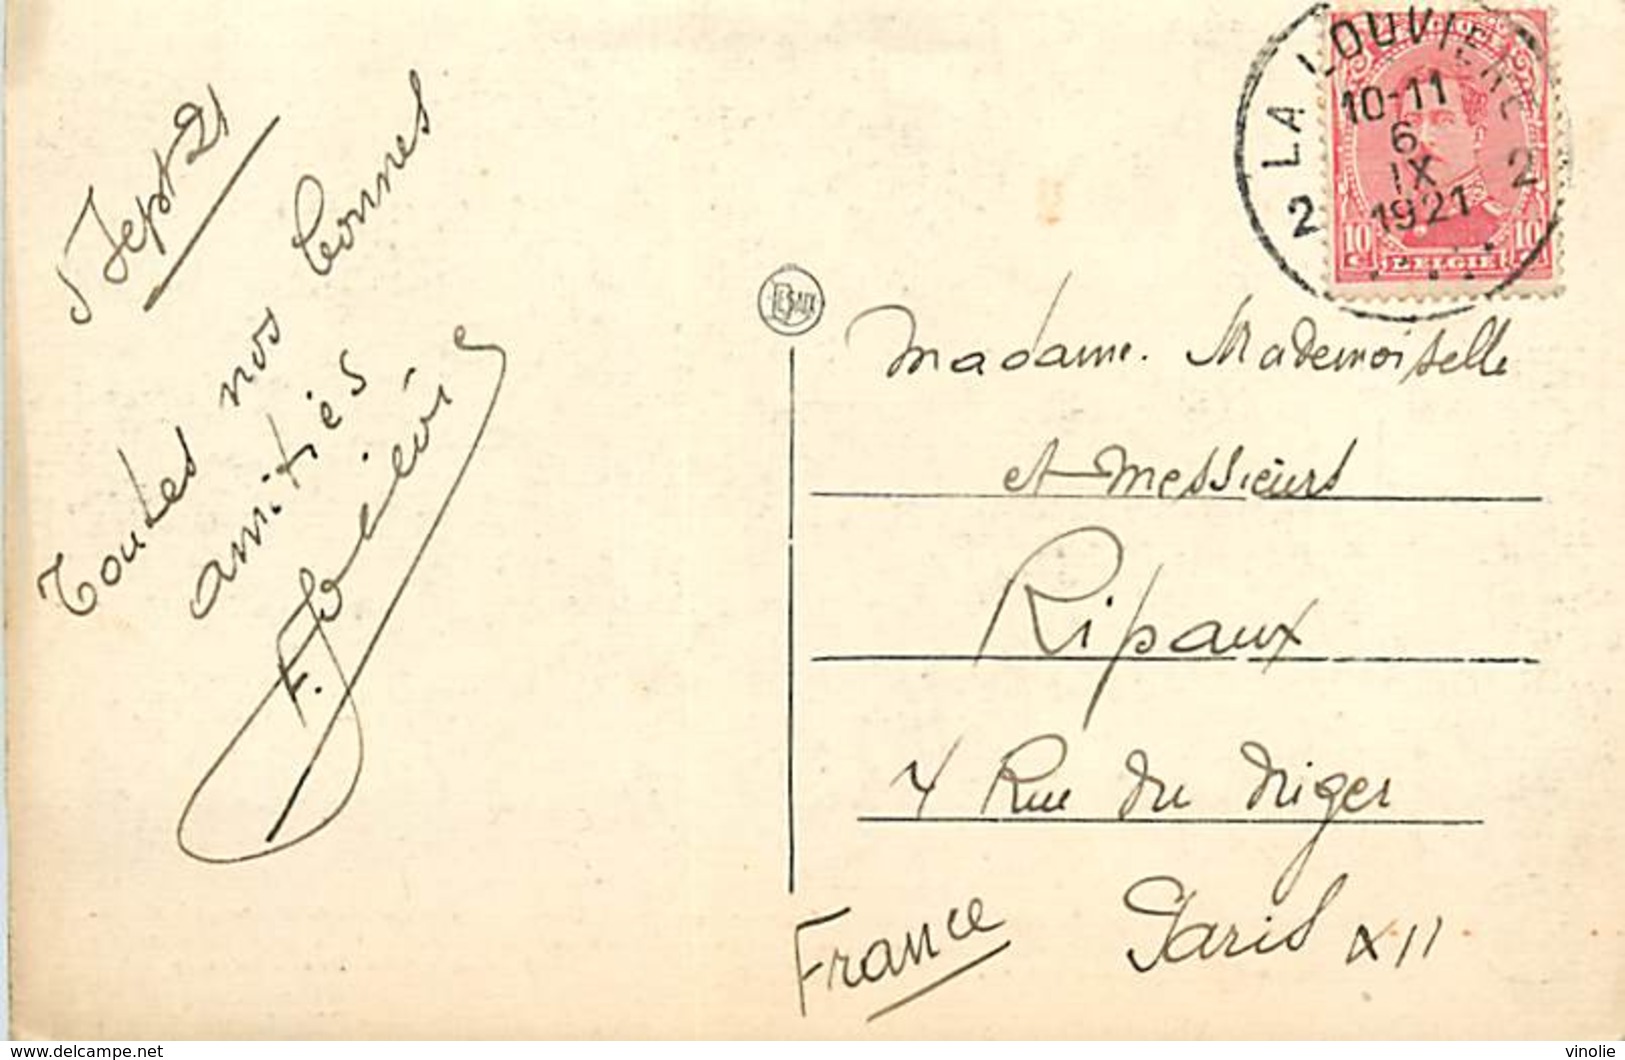 5 Sept 21
Toutes nos bonnes
amitiés
F.
LA LOUVIERE
2 2
10-11
6
IX
1921
10 10
BELGIE
Madame. Mademoiselle
et Messieurs
Ripaux
4 Rue du Niger
Paris XII
France
delcampe.net
vinolie